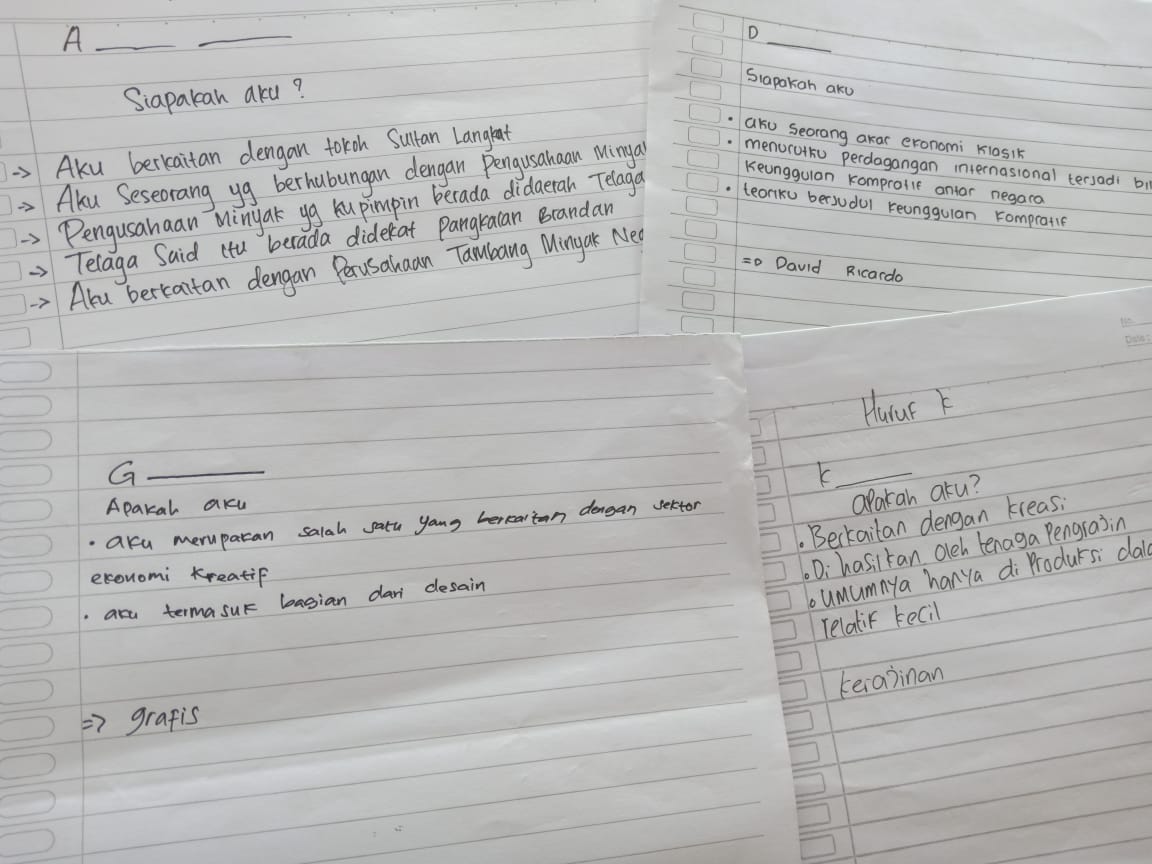 A
Siapakah aku ?
-> Aku berkaitan dengan tokoh Sultan Langkat
-> Aku Seseorang yg berhubungan dengan Pengusahaan
-> Pengusahaan Minyak yg ku pimpin berada didaerah Telaga
-> Telaga Said itu berada didekat Pangkalan Brandan
-> Aku berkaitan dengan Perusahaan Tambang Minyak
D
Siapakah aku
• aku seorang akar ekonomi klasik
• menurutku perdagangan internasional terjadi
keunggulan kompratif antar negara
• teoriku bersudul keunggulan kompratif
=D David Ricardo
G
Apakah aku
• aku merupakan salah satu yang berkaitan dengan sektor
ekonomi kreatif
• aku termasuk bagian dari desain
=> grafis
No.
Date :
Huruf k
k
apakah aku?
• Berkaitan dengan kreasi
• Di hasilkan oleh tenaga Pengrajin
• umumnya hanya di Produksi
relatif kecil
kerajinan